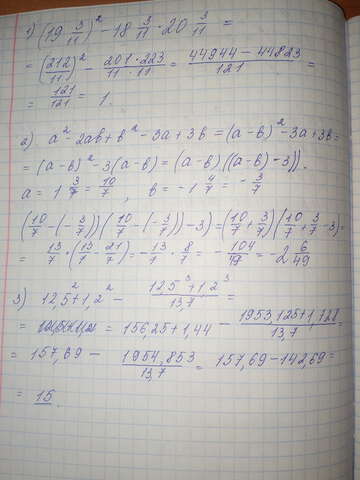 1) (19 3/11)² - 18 3/11 · 20 3/11 =
= (212/11)² - (201 · 223)/(11 · 11) = (44944 - 44823)/121 =
= 121/121 = 1.
2) a² - 2ab + b² - 3a + 3b = (a - b)² - 3a + 3b =
= (a - b)² - 3(a - b) = (a - b)((a - b) - 3)).
a = 1 3/7 = 10/7, b = -1 4/7 = -3/7
(10/7 - (-3/7))(10/7 - (-3/7)) - 3) = (10/7 + 3/7)(10/7 + 3/7 - 3) =
= 13/7 · (13/7 - 21/7) = -13/7 · 8/7 = -104/49 = -2 6/49
3) 12,5² + 1,2² - (12,5³ + 1,2³)/13,7 =
= = 156,25 + 1,44 - (1953,125 + 1,728)/13,7 =
= 157,69 - 1954,853/13,7 = 157,69 - 142,69 =
= 15.